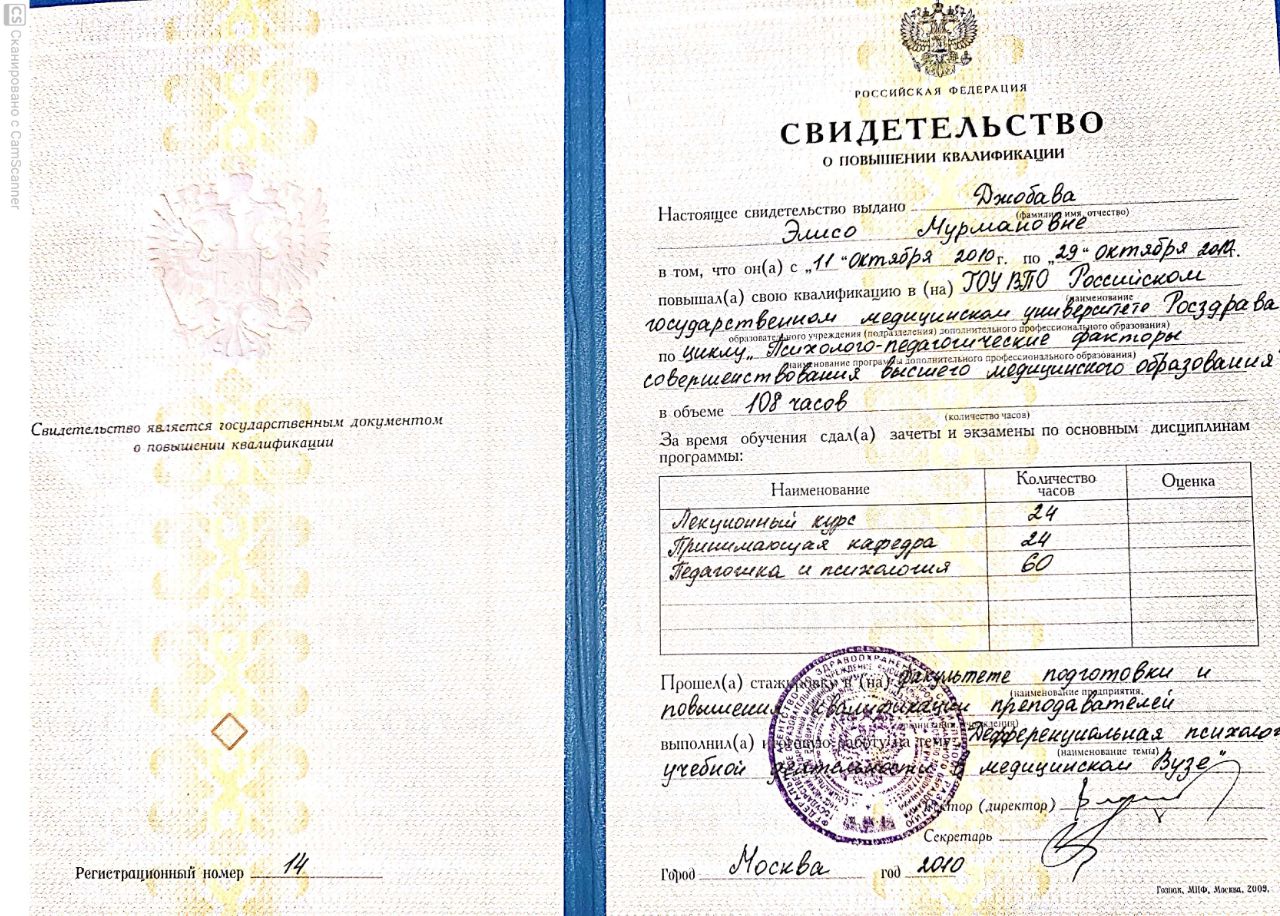 CS Сканировано с CamScanner
Свидетельство является государственным документом
о повышении квалификации
Регистрационный номер 14
РОССИЙСКАЯ ФЕДЕРАЦИЯ
СВИДЕТЕЛЬСТВО
О ПОВЫШЕНИИ КВАЛИФИКАЦИИ
Настоящее свидетельство выдано Джобава
(фамилия, имя, отчество)
Элисо Мурмановне
в том, что он(а) с „11“ октября 2010г. по „29“ октября 2010г.
повышал(а) свою квалификацию в (на) ГОУ ВПО Российском
(наименование
государственном медицинском университете Росздрава
образовательного учреждения (подразделения) дополнительного профессионального образования)
по циклу „Психолого-педагогические факторы
(наименование программы дополнительного профессионального образования)
совершенствования высшего медицинского образования
в объеме 108 часов
(количество часов)
За время обучения сдал(а) зачеты и экзамены по основным дисциплинам
программы:
Наименование Количество часов Оценка
Лекционный курс 24
Принимающая кафедра 24
Педагогика и психология 60
Прошел(а) стажировку в (на) факультете подготовки и
(наименование предприятия,
повышения квалификации преподавателей
выполнил(а) итоговую работу на тему Дефференциальная психолог
(наименование темы)
учебной деятельности в медицинском Вузе"
Ректор (директор)
Секретарь
Город Москва год 2010
Гознак, МПФ, Москва, 2009.